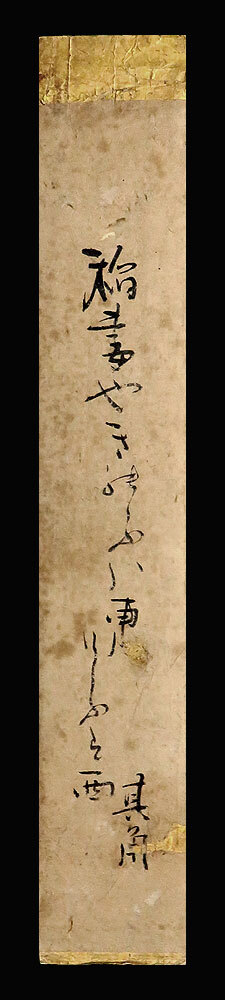 稲妻やきのふハ東
けふハ西
其角